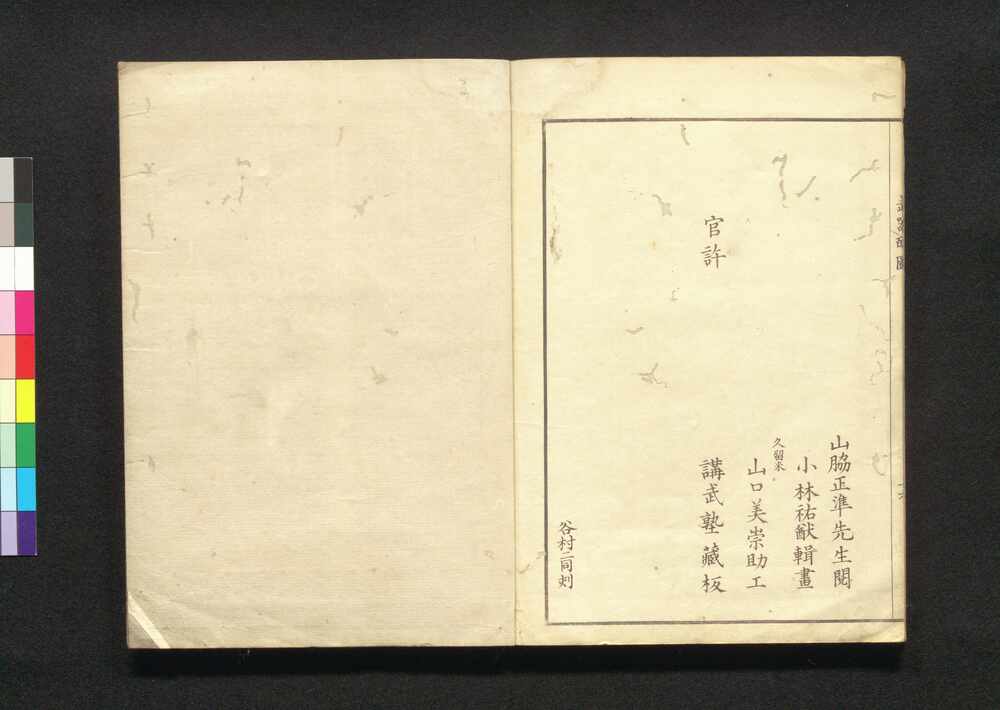 山脇正準先生閱
小林祐猷輯畫
久留米
山口美崇助工
官許
講武塾藏板
谷村二同刻